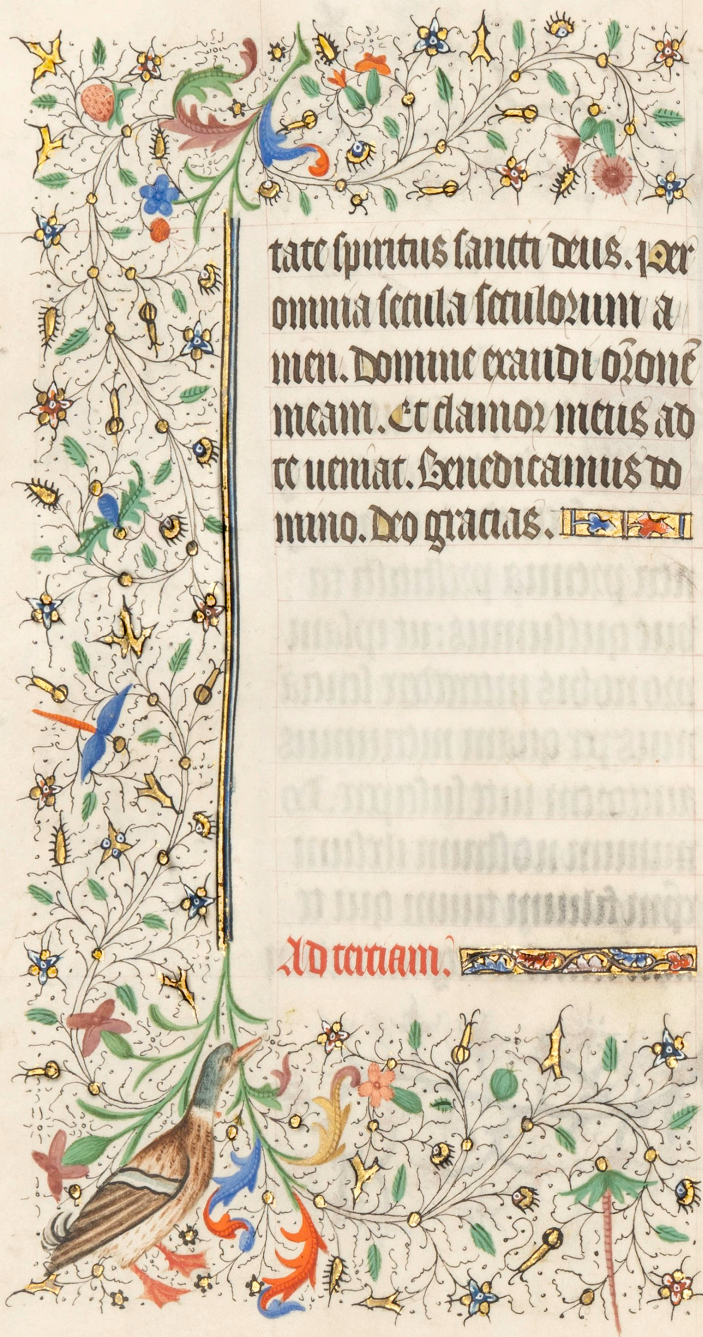 tate spiritus sancti deus. Per
omnia secula seculorum a
men. Domine exaudi or̄onē
meam. Et clamor meus ad
te ueniat. Benedicamus do
mino. Deo gracias.
Ad terciam.